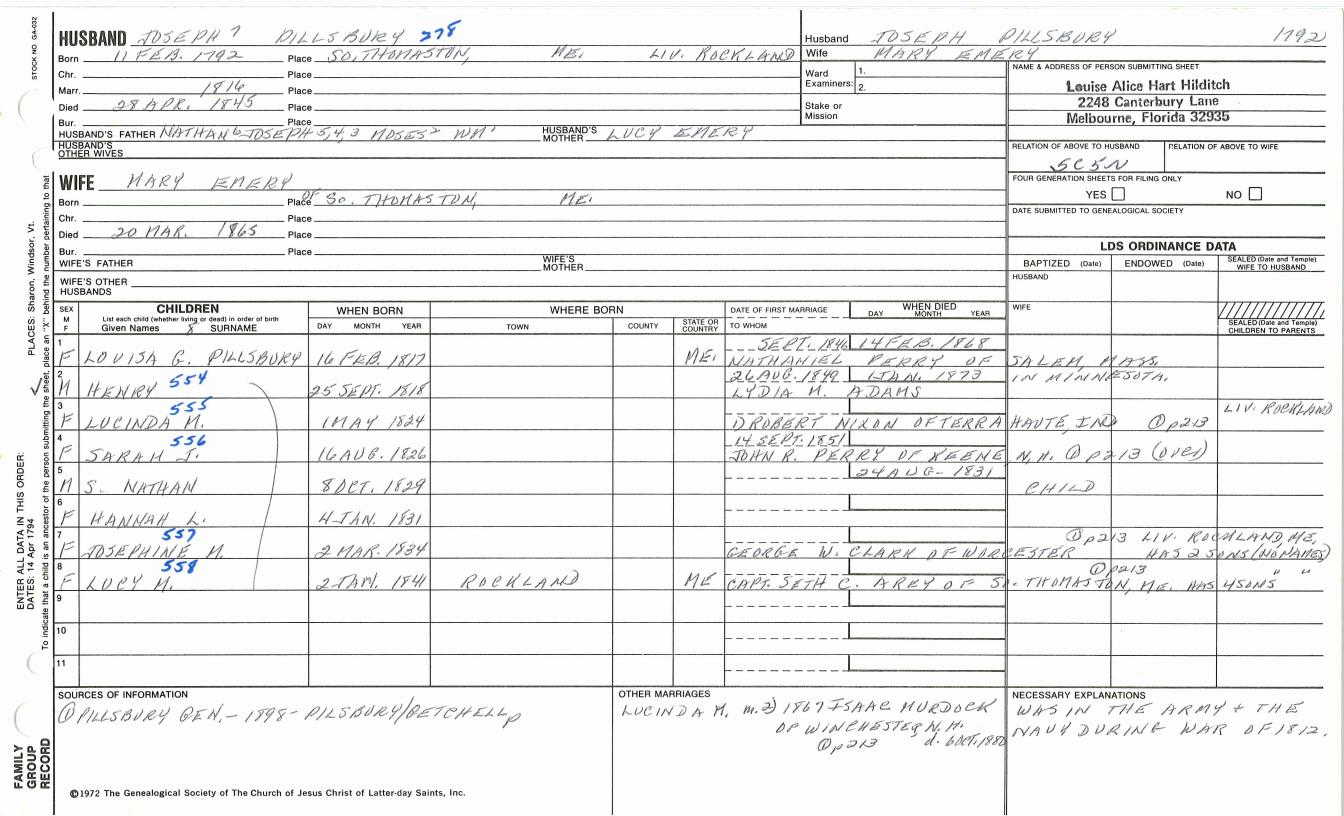 STOCK NO. GA-032
HUSBAND JOSEPH 7 PILLSBURY 278
Born 11 FEB. 1792 Place SO. THOMASTON, ME. LIV. ROCKLAND
Chr. Place
Marr. 1816 Place
Died 28 APR. 1845 Place
Bur. Place
HUSBAND'S FATHER NATHAN 6 JOSEPH 5,4,3 MOSES 2 WM 1 HUSBAND'S MOTHER LUCY EMERY
HUSBAND'S OTHER WIVES
Husband JOSEPH PILLSBURY 1792
Wife MARY EMERY
Ward Examiners: 1.
2.
Stake or Mission
NAME & ADDRESS OF PERSON SUBMITTING SHEET
Louise Alice Hart Hilditch
2248 Canterbury Lane
Melbourne, Florida 32935
RELATION OF ABOVE TO HUSBAND RELATION OF ABOVE TO WIFE
5C5N
FOUR GENERATION SHEETS FOR FILING ONLY
YES NO
DATE SUBMITTED TO GENEALOGICAL SOCIETY
WIFE MARY EMERY
Born Place OF SO. THOMASTON, ME.
Chr. Place
Died 20 MAR. 1865 Place
Bur. Place
WIFE'S FATHER WIFE'S MOTHER
WIFE'S OTHER HUSBANDS
LDS ORDINANCE DATA
BAPTIZED (Date) ENDOWED (Date) SEALED (Date and Temple) WIFE TO HUSBAND
HUSBAND
WIFE
SEALED (Date and Temple) CHILDREN TO PARENTS
SEX M F CHILDREN WHEN BORN WHERE BORN DATE OF FIRST MARRIAGE WHEN DIED
List each child (whether living or dead) in order of birth
Given Names SURNAME DAY MONTH YEAR TOWN COUNTY STATE OR COUNTRY TO WHOM DAY MONTH YEAR
1 SEPT. 1846 14 FEB. 1868
F LOUISA G. PILLSBURY 16 FEB. 1817 ME. NATHANIEL PERRY OF SALEM, MASS.
2 554 26 AUG. 1849 1 JAN. 1873 IN MINNESOTA.
M HENRY 25 SEPT. 1818 LYDIA M. ADAMS
3 555 LIV. ROCKLAND
F LUCINDA M. 1 MAY 1824 DROBERT NIXON OF TERRA HAUTE, IND ① p213
4 556 14 SEPT. 1851
F SARAH J. 16 AUG. 1826 JOHN R. PERRY OF KEENE N.H. ① p213 (OVER)
5 24 AUG- 1831
M S. NATHAN 8 OCT. 1829 CHILD
6
F HANNAH L. 4 JAN. 1831
7 557 ① p213 LIV. ROCKLAND, ME,
F JOSEPHINE M. 2 MAR. 1834 GEORGE W. CLARK OF WORCESTER HAS 2 SONS (NO NAMES)
8 558 ① p213 " "
F LUCY M. 2 JAN. 1841 ROCKLAND ME CAPT. SETH C. AREY OF SO. THOMASTON, ME. HAS 4 SONS
9
10
11
SOURCES OF INFORMATION
① PILLSBURY GEN. - 1898 - PILSBURY/GETCHELL p
OTHER MARRIAGES
LUCINDA M. m. 2) 1867 ISAAC MURDOCK
OF WINCHESTER, N.H.
① p213 d. 6 OCT. 1880
NECESSARY EXPLANATIONS
WAS IN THE ARMY + THE
NAVY DURING WAR OF 1812.
©1972 The Genealogical Society of The Church of Jesus Christ of Latter-day Saints, Inc.
PLACES: Sharon, Windsor, Vt.
ENTER ALL DATA IN THIS ORDER:
DATES: 14 Apr 1794
To indicate that a child is an ancestor of the person submitting the sheet, place an "X" behind the number pertaining to that
FAMILY
GROUP
RECORD